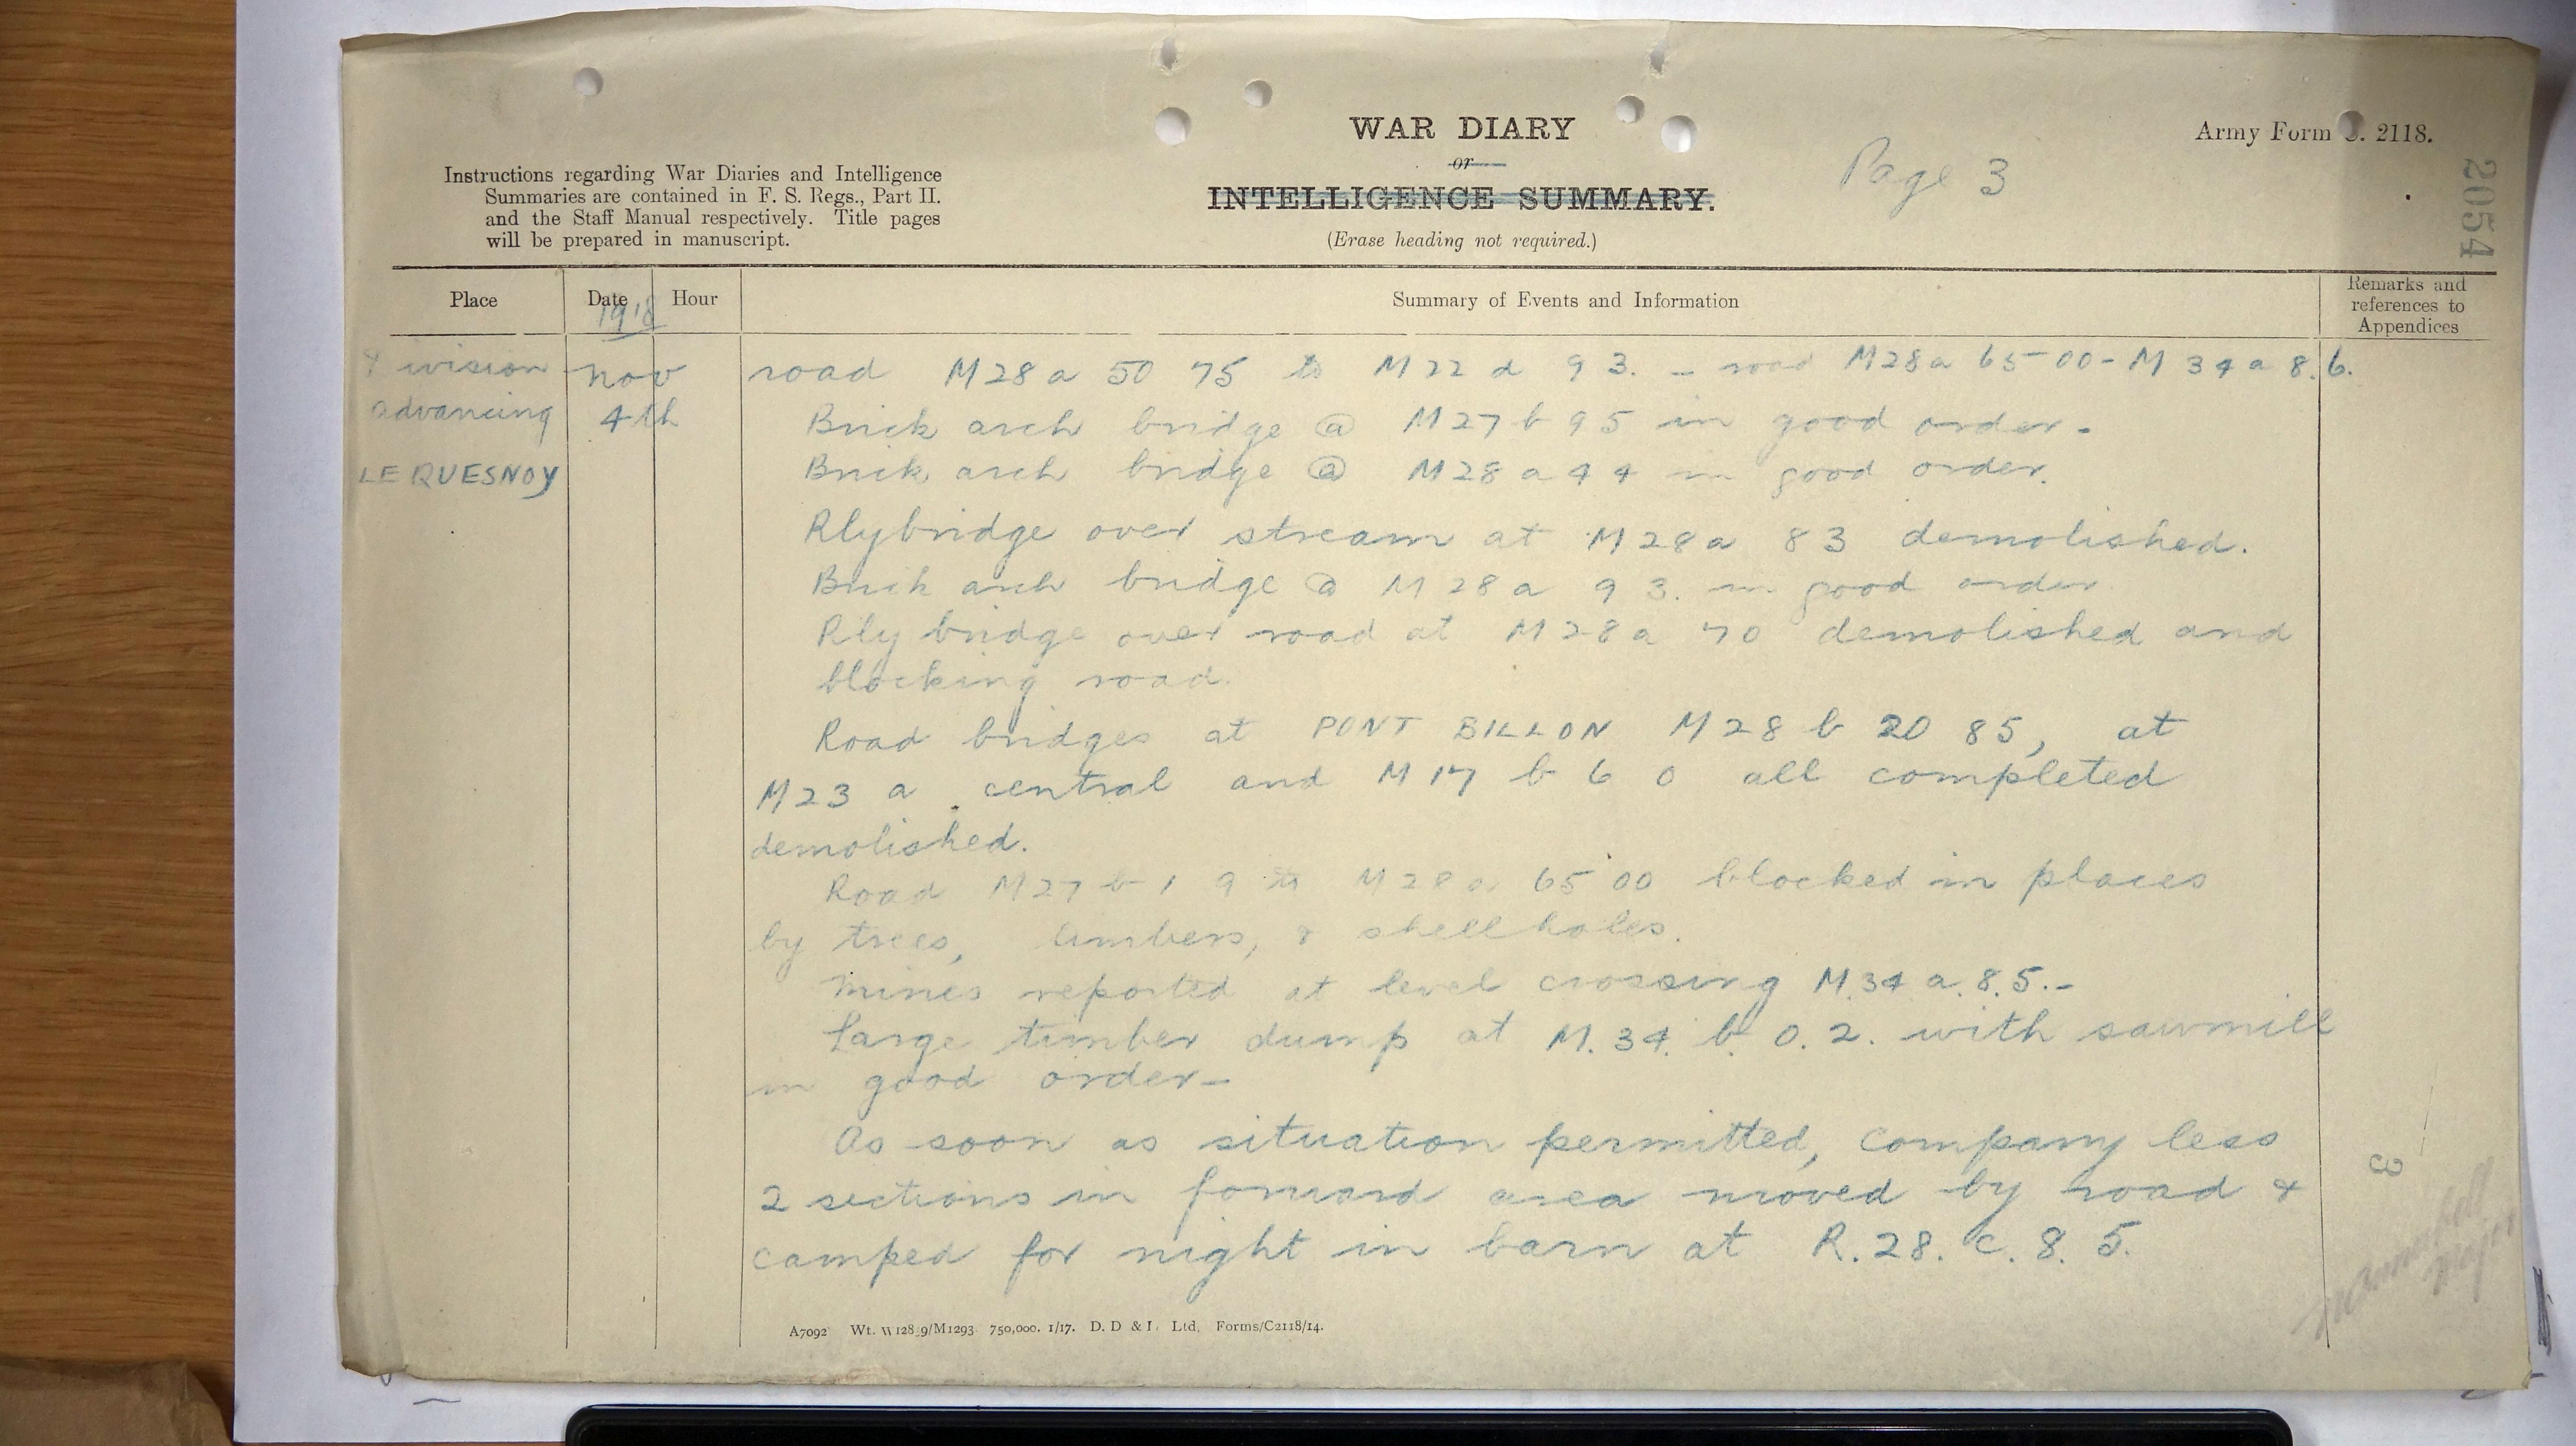 WAR DIARY
or
INTELLIGENCE SUMMARY.
(Erase heading not required.)
Page 3
Army Form C. 2118.
2054
Instructions regarding War Diaries and Intelligence
Summaries are contained in F. S. Regs., Part II.
and the Staff Manual respectively. Title pages
will be prepared in manuscript.
Place
Date
1918
Hour
Summary of Events and Information
Remarks and
references to
Appendices
advancing
LE QUESNOY
Nov
4th
road M28a 50 75 to M22d 93. - road M28a 65-00 - M34a8.6.
Brick arch bridge @ M27b95 in good order.
Brick arch bridge @ M28a44 in good order.
Rly bridge over stream at M28a 83 demolished.
Brick arch bridge @ M28a 93. in good order
Rly bridge over road at M28a 70 demolished and
blocking road.
Road bridges at PONT BILLON M28b 20 85, at
M23 a central and M17 b 6 0 all completed
demolished.
Road M27b 1 9 to M28a 65 00 blocked in places
by trees, limbers, & shell holes.
Mines reported at level crossing M.34a.8.5.-
Large timber dump at M.34.b.0.2. with sawmill
in good order-
As soon as situation permitted, company less
2 sections in forward area moved by road &
camped for night in barn at R.28.c.8.5.
3
Major
A7092 Wt. W128 9/M1293 750,000. 1/17. D. D & L Ltd, Forms/C2118/14.